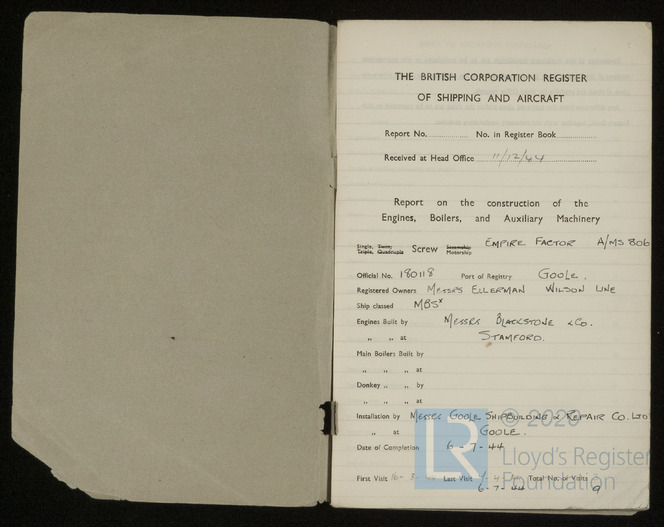 THE BRITISH CORPORATION REGISTER
OF SHIPPING AND AIRCRAFT
Report No. No. in Register Book
Received at Head Office 11/12/44
Report on the construction of the
Engines, Boilers, and Auxiliary Machinery
Single, Twin, Triple, Quadruple Screw Steamship Motorship EMPIRE FACTOR A/MS 806
Official No. 180118 Port of Registry GOOLE.
Registered Owners MESSRS ELLERMAN WILSON LINE
Ship classed MBS*
Engines Built by MESSRS BLACKSTONE & CO.
„ „ at STAMFORD.
Main Boilers Built by
„ „ „ at
Donkey „ „ by
„ „ „ at
Installation by MESSRS GOOLE SHIPBUILDING & REPAIR CO. LTD
„ at GOOLE.
Date of Completion 6-7-44
First Visit Last Visit Total No. of Visits 9
6-7-44
© 2020
LR
Lloyd's Register
Foundation